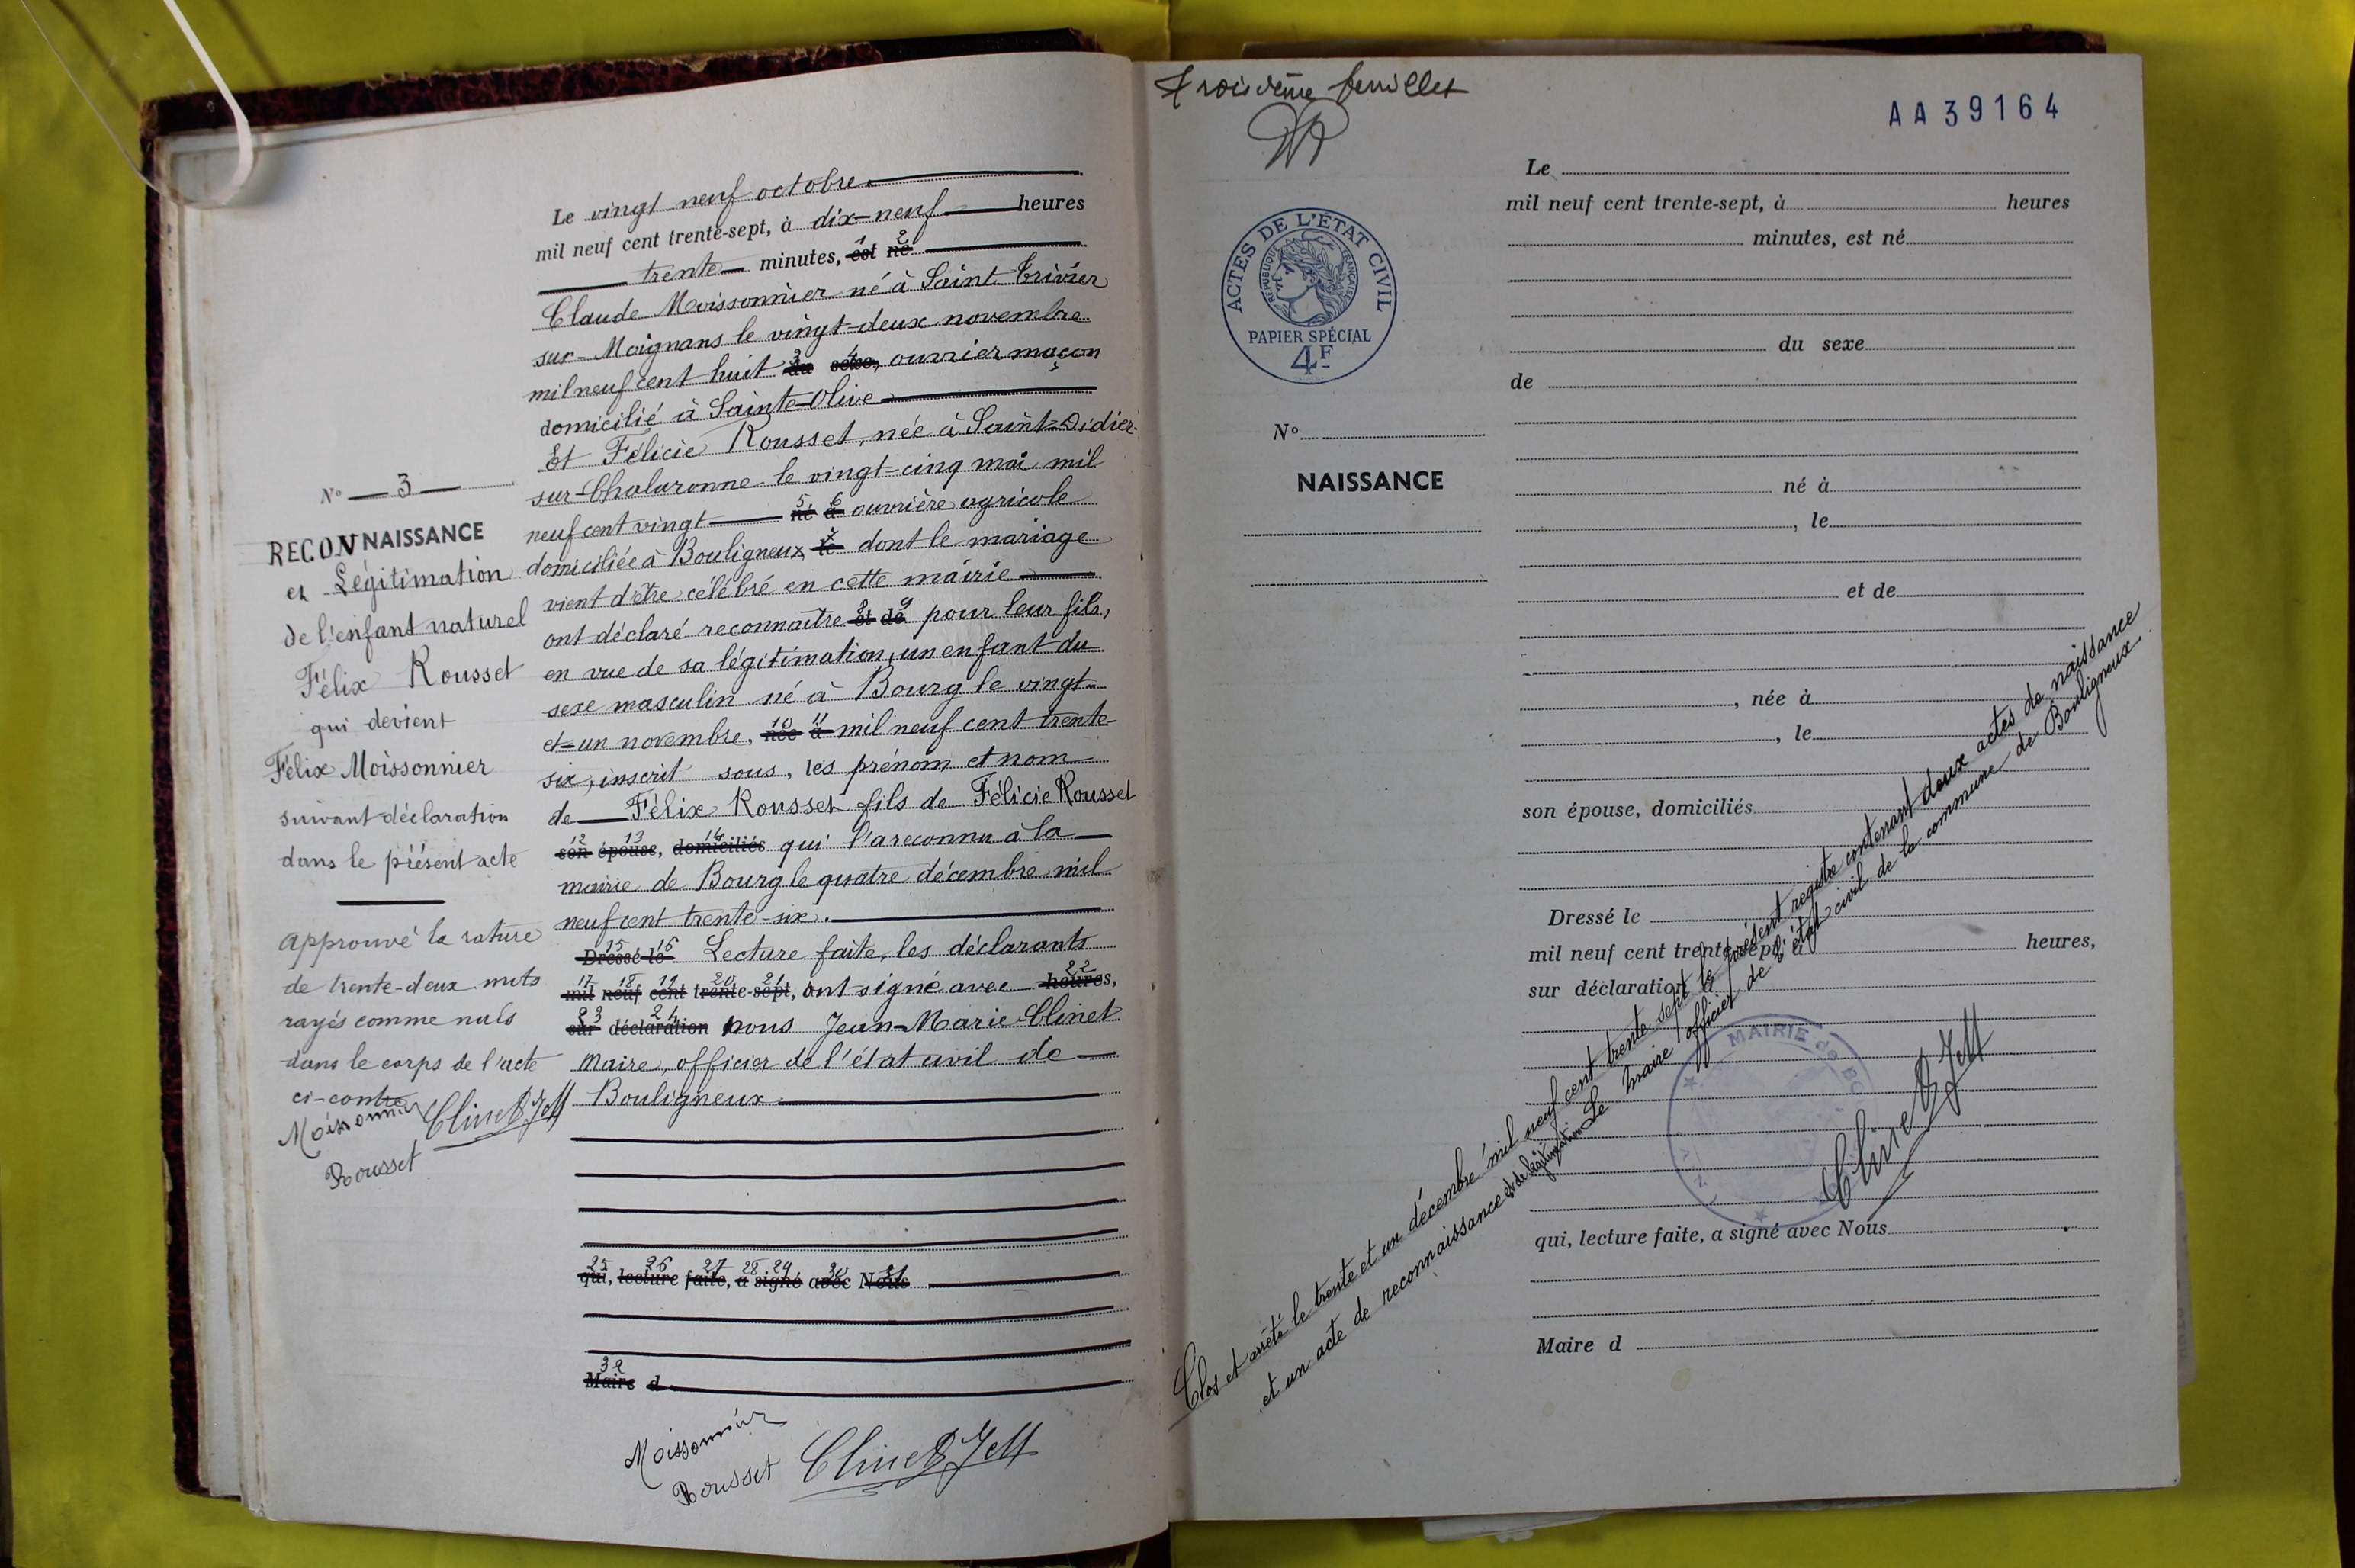 N° 3
RECONNAISSANCE
et Légitimation
de l'enfant naturel
Félix Rousset
qui devient
Félix Moissonnier
suivant déclaration
dans le présent acte
approuvé la rature
de trente-deux mots
rayés comme nuls
dans le corps de l'acte
ci-contre
Moissonnier Clinet JM
Rousset
Le vingt neuf octobre
mil neuf cent trente-sept, à dix-neuf heures
trente minutes, est 1 né 2
Claude Moissonnier né à Saint Trivier
sur-Moignans le vingt-deux novembre
mil neuf cent huit du 3 sexe, 4 ouvrier maçon
domicilié à Sainte-Olive
Et Félicie Rousset, née à Saint-Didier-
sur-Chalaronne le vingt-cinq mai mil
neuf cent vingt né 5 à 6 ouvrière agricole
domiciliée à Bouligneux, le 7 dont le mariage
vient d'être célébré en cette mairie
ont déclaré reconnaître et 8 de 9 pour leur fils,
en vue de sa légitimation, un enfant du
sexe masculin né à Bourg le vingt-
et-un novembre, née 10 à 11 mil neuf cent trente-
six, inscrit sous, les prénom et nom
de Félix Rousset fils de Félicie Rousset
son 12 épouse, 13 domiciliés 14 qui l'a reconnu à la
mairie de Bourg le quatre décembre mil
neuf cent trente-six.
Dressé 15 le 16 Lecture faite, les déclarants
mil 17 neuf 18 cent 19 trente 20-sept, 21 ont signé avec heures, 22
sur 23 déclaration 24 nous Jean-Marie Clinet
Maire, officier de l'état civil de
Bouligneux
qui, 25 lecture 26 faite, 27 a 28 signé 29 avec 30 Nous 31
Maire 32 d
Moissonnier
Rousset Clinet JM
troisième feuillet
AA39164
ACTES DE L'ÉTAT CIVIL
RÉPUBLIQUE FRANÇAISE
PAPIER SPÉCIAL
4F
N°
NAISSANCE
Le
mil neuf cent trente-sept, à heures
minutes, est né
du sexe
de
né à
, le
et de
, née à
, le
son épouse, domiciliés
Dressé le
mil neuf cent trente-sept, à heures,
sur déclaration d
qui, lecture faite, a signé avec Nous
Maire d
Clos et arrêté le trente et un décembre mil neuf cent trente sept le présent registre contenant deux actes de naissance
et un acte de reconnaissance et de légitimation Le Maire officier de l'état civil de la commune de Bouligneux
MAIRIE de BO
Clinet JM